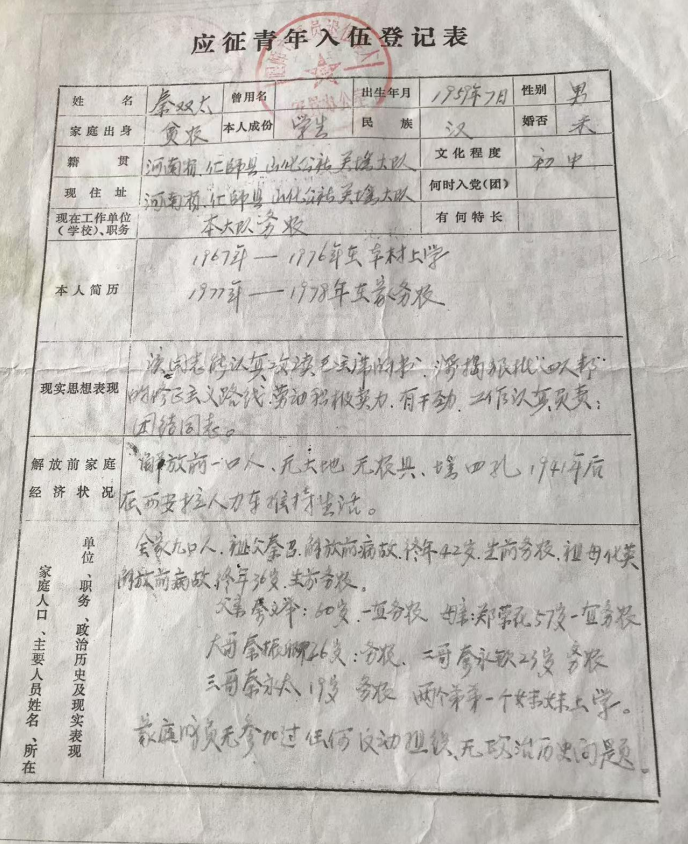 应征青年入伍登记表
姓名 秦双太 曾用名 出生年月 1959年7月 性别 男
家庭出身 贫农 本人成份 学生 民族 汉 婚否 未
籍贯 河南省仁师县山化公社 大队 文化程度 初中
现住址 河南省仁师县山化公社 大队 何时入党(团)
现在工作单位(学校)、职务 本大队务农 有何特长
本人简历
1967年——1976年在本村上学
1977年——1978年在家务农
现实思想表现
该同志能认真攻读毛主席的书,深揭狠批“四人帮”
的修正主义路线,劳动积极卖力,有干劲,工作认真负责;
团结同志。
解放前家庭经济状况
解放前一口人、无土地 无农具、 四孔 1941年后
在西安拉人力车维持生活。
家庭人口、主要人员姓名、所在单位、职务、政治历史及现实表现
全家九口人,祖父秦 ,解放前病故,终年42岁,生前务农,祖母化英
解放前病故,终年36岁,生前务农。
父亲秦 :60岁,一直务农 母亲:郑荣花57岁一直务农
大哥秦振 26岁:务农、二哥秦永钦23岁 务农
三哥秦永太19岁 务农 两个弟弟一个妹妹上学。
家庭成员无参加过任何反动组织,无政治历史问题。